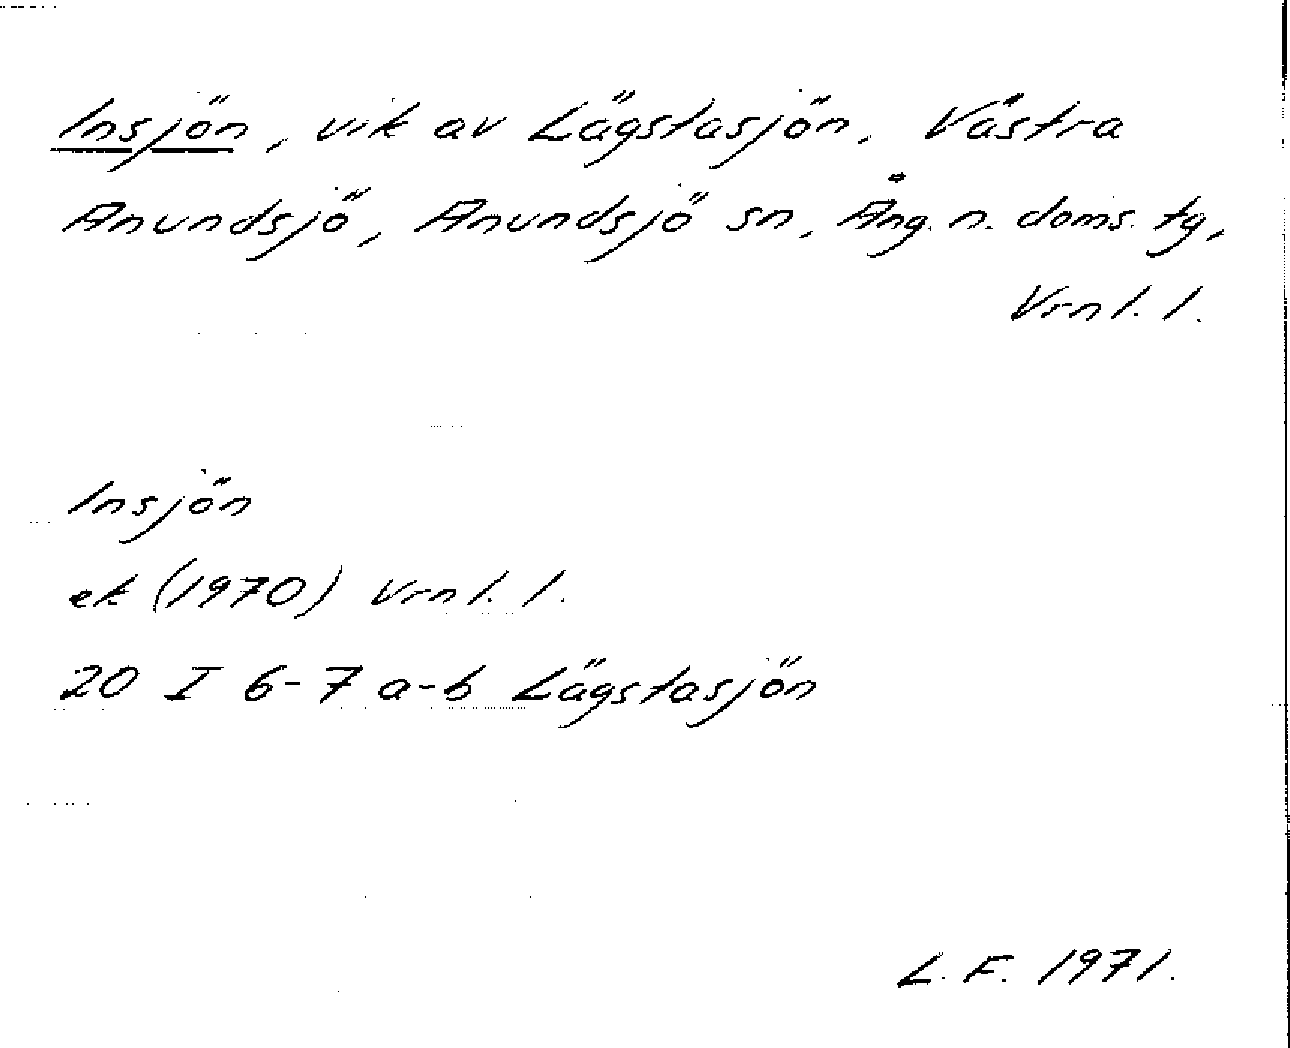 Insjön, vik av Lägstasjön, Västra
Anundsjö, Anundsjö sn, Ång. n. doms. tg,
Vrnl. l.
Insjön
ek (1970) Vrnl. l.
20 I 6-7 a-b Lägstasjön
L. F. 1971.